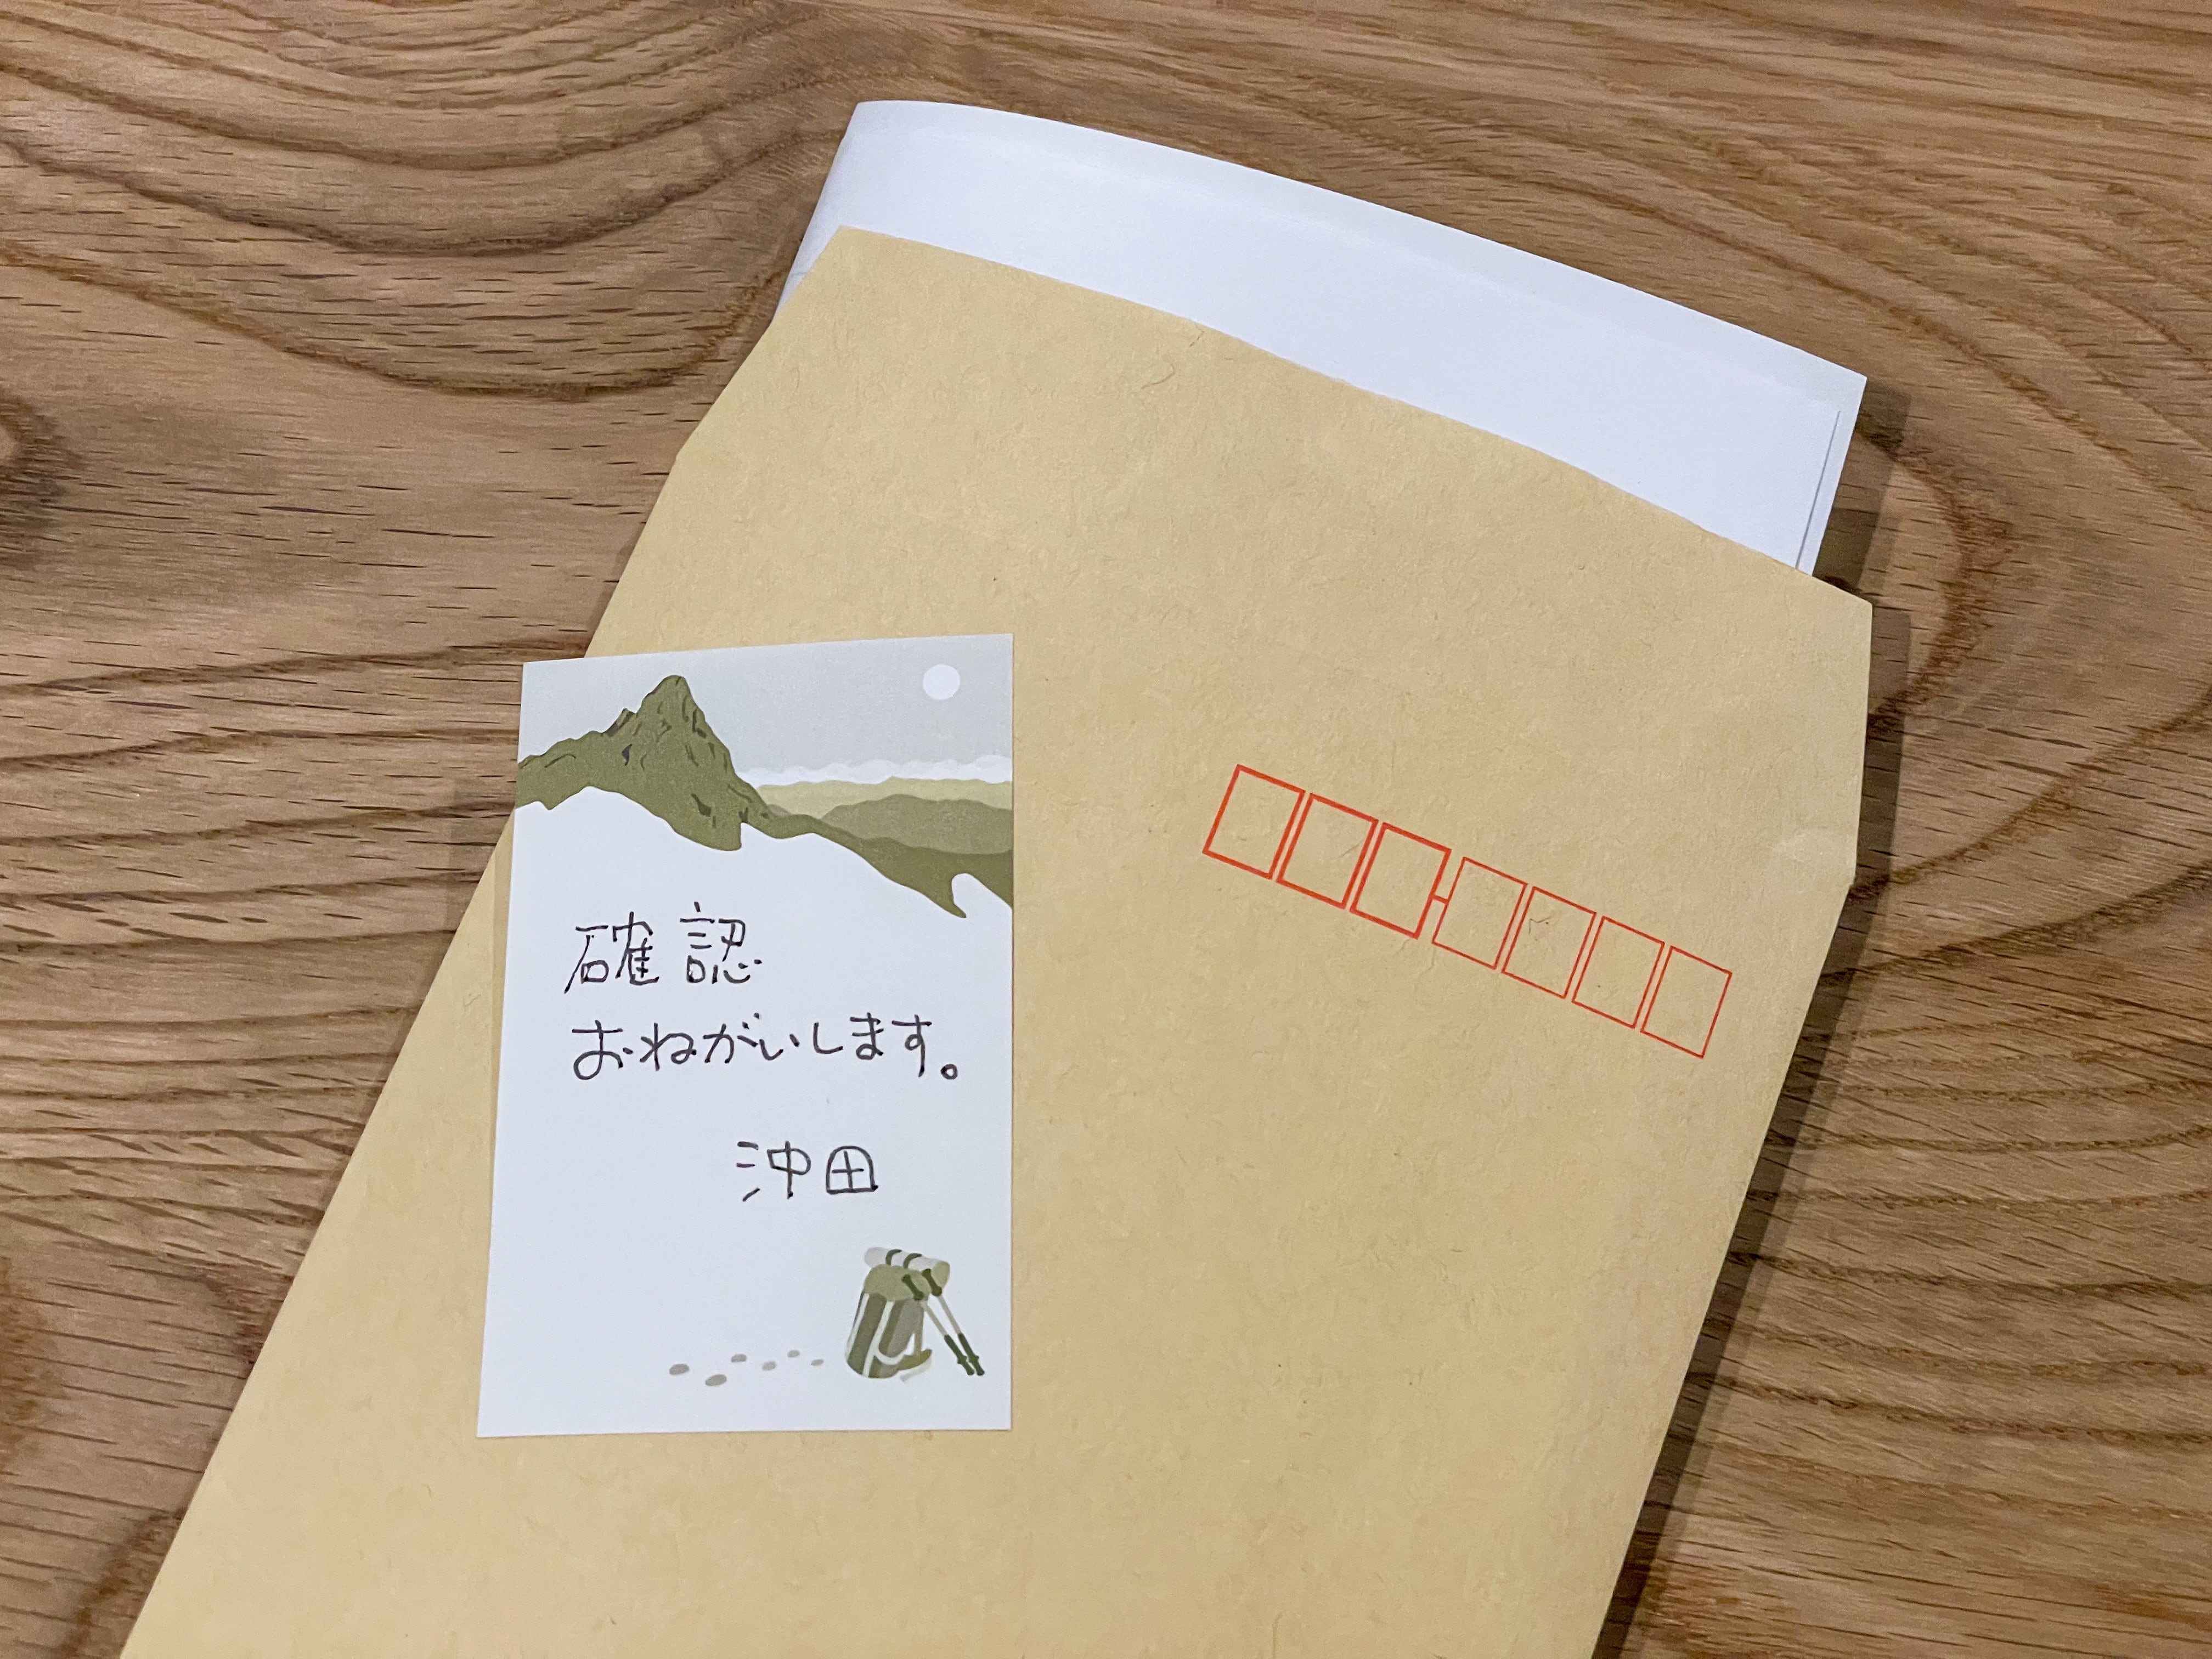 確認
おねがいします。
沖田